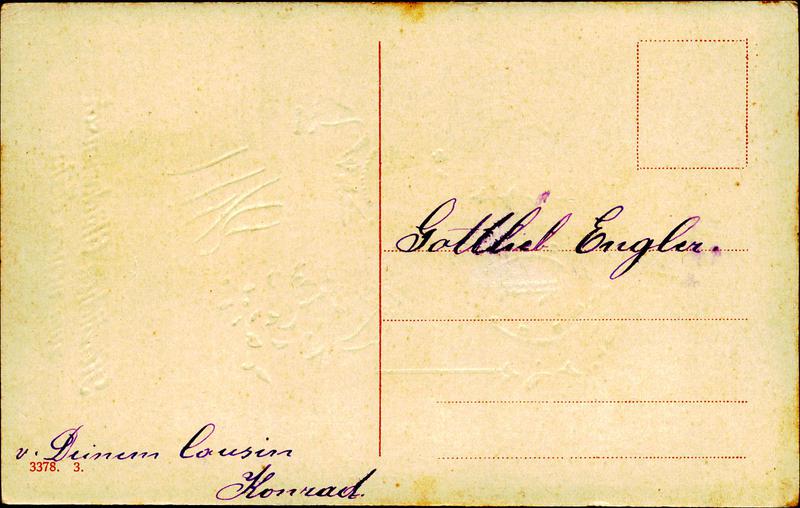 Gottlieb Engler.
v. Deinem Cousin
3378. 3.
Konrad.